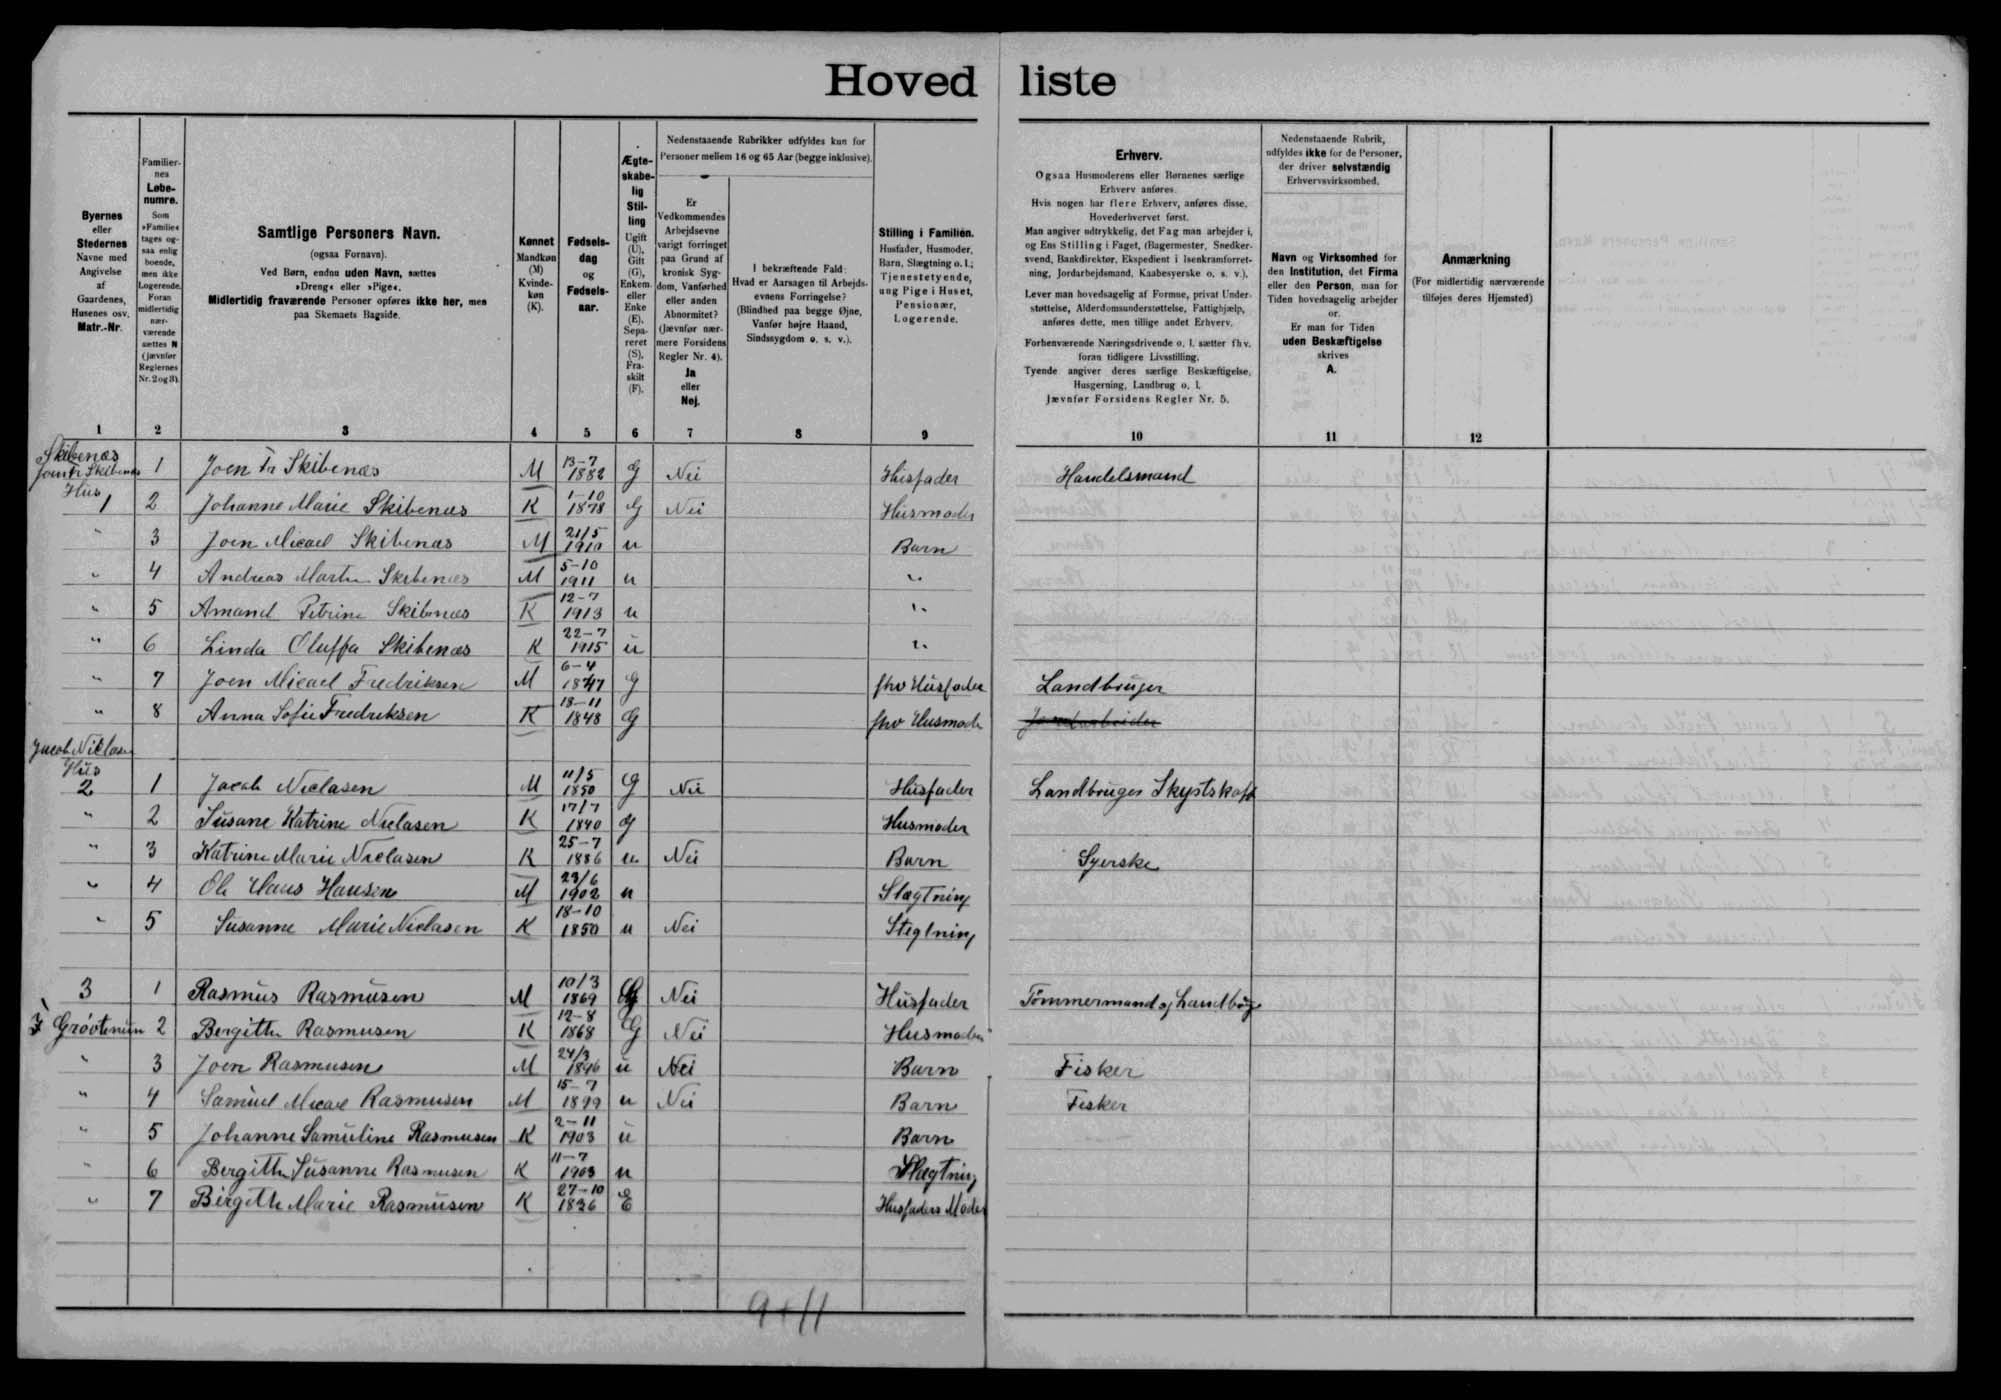 Hoved liste
Byernes
eller
Stedernes
Navne med
Angivelse
af
Gaardenes,
Husenes osv.
Matr.-Nr.
Familier-
nes
Løbe-
numre.
Som
»Familie«
tages og-
saa enlig
boende,
men ikke
Logerende.
Foran
midlertidig
nær-
værende
sættes N
(jævnfør
Reglernes
Nr. 2 og 3).
Samtlige Personers Navn.
(ogsaa Fornavn).
Ved Børn, endnu uden Navn, sættes
»Dreng« eller »Pige«.
Midlertidig fraværende Personer opføres ikke her, men
paa Skemaets Bagside.
Kønnet
Mandkøn
(M)
Kvinde-
køn
(K).
Fødsels-
dag
og
Fødsels-
aar.
Ægte-
skabe-
lig
Stil-
ling
Ugift
(U),
Gift
(G),
Enkem.
eller
Enke
(E),
Sepa-
reret
(S),
Fra-
skilt
(F).
Nedenstaaende Rubrikker udfyldes kun for
Personer mellem 16 og 65 Aar (begge inklusive).
Er
Vedkommendes
Arbejdsevne
varigt forringet
paa Grund af
kronisk Syg-
dom, Vanførhed
eller anden
Abnormitet?
(Jævnfør nær-
mere Forsidens
Regler Nr. 4).
Ja
eller
Nej.
I bekræftende Fald:
Hvad er Aarsagen til Arbejds-
evnens Forringelse?
(Blindhed paa begge Øjne,
Vanfør højre Haand,
Sindssygdom o. s. v.).
Stilling i Familien.
Husfader, Husmoder,
Barn, Slægtning o. l.;
Tjenestetyende,
ung Pige i Huset,
Pensionær,
Logerende.
Erhverv.
Ogsaa Husmoderens eller Børnenes særlige
Erhverv anføres.
Hvis nogen har flere Erhverv, anføres disse,
Hovederhvervet først.
Man angiver udtrykkelig, det Fag man arbejder i,
og Ens Stilling i Faget, (Bagermester, Snedker-
svend, Bankdirektør, Ekspedient i Isenkramforret-
ning, Jordarbejdsmand, Kaabesyerske o. s. v.).
Lever man hovedsagelig af Formue, privat Under-
støttelse, Alderdomsunderstøttelse, Fattighjælp,
anføres dette, men tillige andet Erhverv.
Forhenværende Næringsdrivende o. l. sætter fhv.
foran tidligere Livsstilling.
Tyende angiver deres særlige Beskæftigelse,
Husgerning, Landbrug o. l.
Jævnfør Forsidens Regler Nr. 5.
Nedenstaaende Rubrik,
udfyldes ikke for de Personer,
der driver selvstændig
Erhvervsvirksomhed.
Navn og Virksomhed for
den Institution, det Firma
eller den Person, man for
Tiden hovedsagelig arbejder
for.
Er man for Tiden
uden Beskæftigelse
skrives
A.
Anmærkning
(For midlertidig nærværende
tilføjes deres Hjemsted)
1 2 3 4 5 6 7 8 9 10 11 12
Skibenæs
Joen Fr Skibenæs 1 Joen Fr Skibenæs M 13-7 1882 G Nei Husfader Handelsmand
Hus
1 2 Johanne Marie Skibenæs K 1-10 1878 G Nei Husmoder
" 3 Joen Micael Skibenæs M 21/5 1910 u Barn
" 4 Andreas Martin Skibenæs M 5-10 1911 u "
" 5 Amand Petrine Skibenæs K 12-7 1913 u "
" 6 Linda Oluffa Skibenæs K 22-7 1915 u "
" 7 Joen Micael Fredriksen M 6-4 1847 G fhv Husfader Landbruger
" 8 Anna Sofie Fredriksen K 18-11 1848 G fhv Husmoder
Jacob Niclasen
Hus
2 1 Jacob Niclasen M 11/5 1850 G Nei Husfader Landbruger Skystskaff
" 2 Susane Katrine Niclasen K 17/7 1840 G Husmoder
" 3 Katrine Marie Niclasen K 25-7 1886 u Nei Barn Syerske
" 4 Ole Hans Hansen M 23/6 1902 u Slægtning
" 5 Susanne Marie Niclasen K 18-10 1850 u Nei Slegtning
3 1 Rasmus Rasmusen M 10/3 1869 G Nei Husfader Tömmermand og Landbrug
I Gróvtenum 2 Bergithe Rasmusen K 12-8 1868 G Nei Husmoder
" 3 Joen Rasmusen M 24/3 1896 u Nei Barn Fisker
" 4 Samuel Micael Rasmusen M 15-7 1899 u Nei Barn Fisker
" 5 Johanne Samuline Rasmusen K 2-11 1903 u Barn
" 6 Bergithe Susanne Rasmusen K 11-7 1903 u Slægtning
" 7 Birgithe Marie Rasmusen K 27-10 1836 E Husfaders Moder
9+11